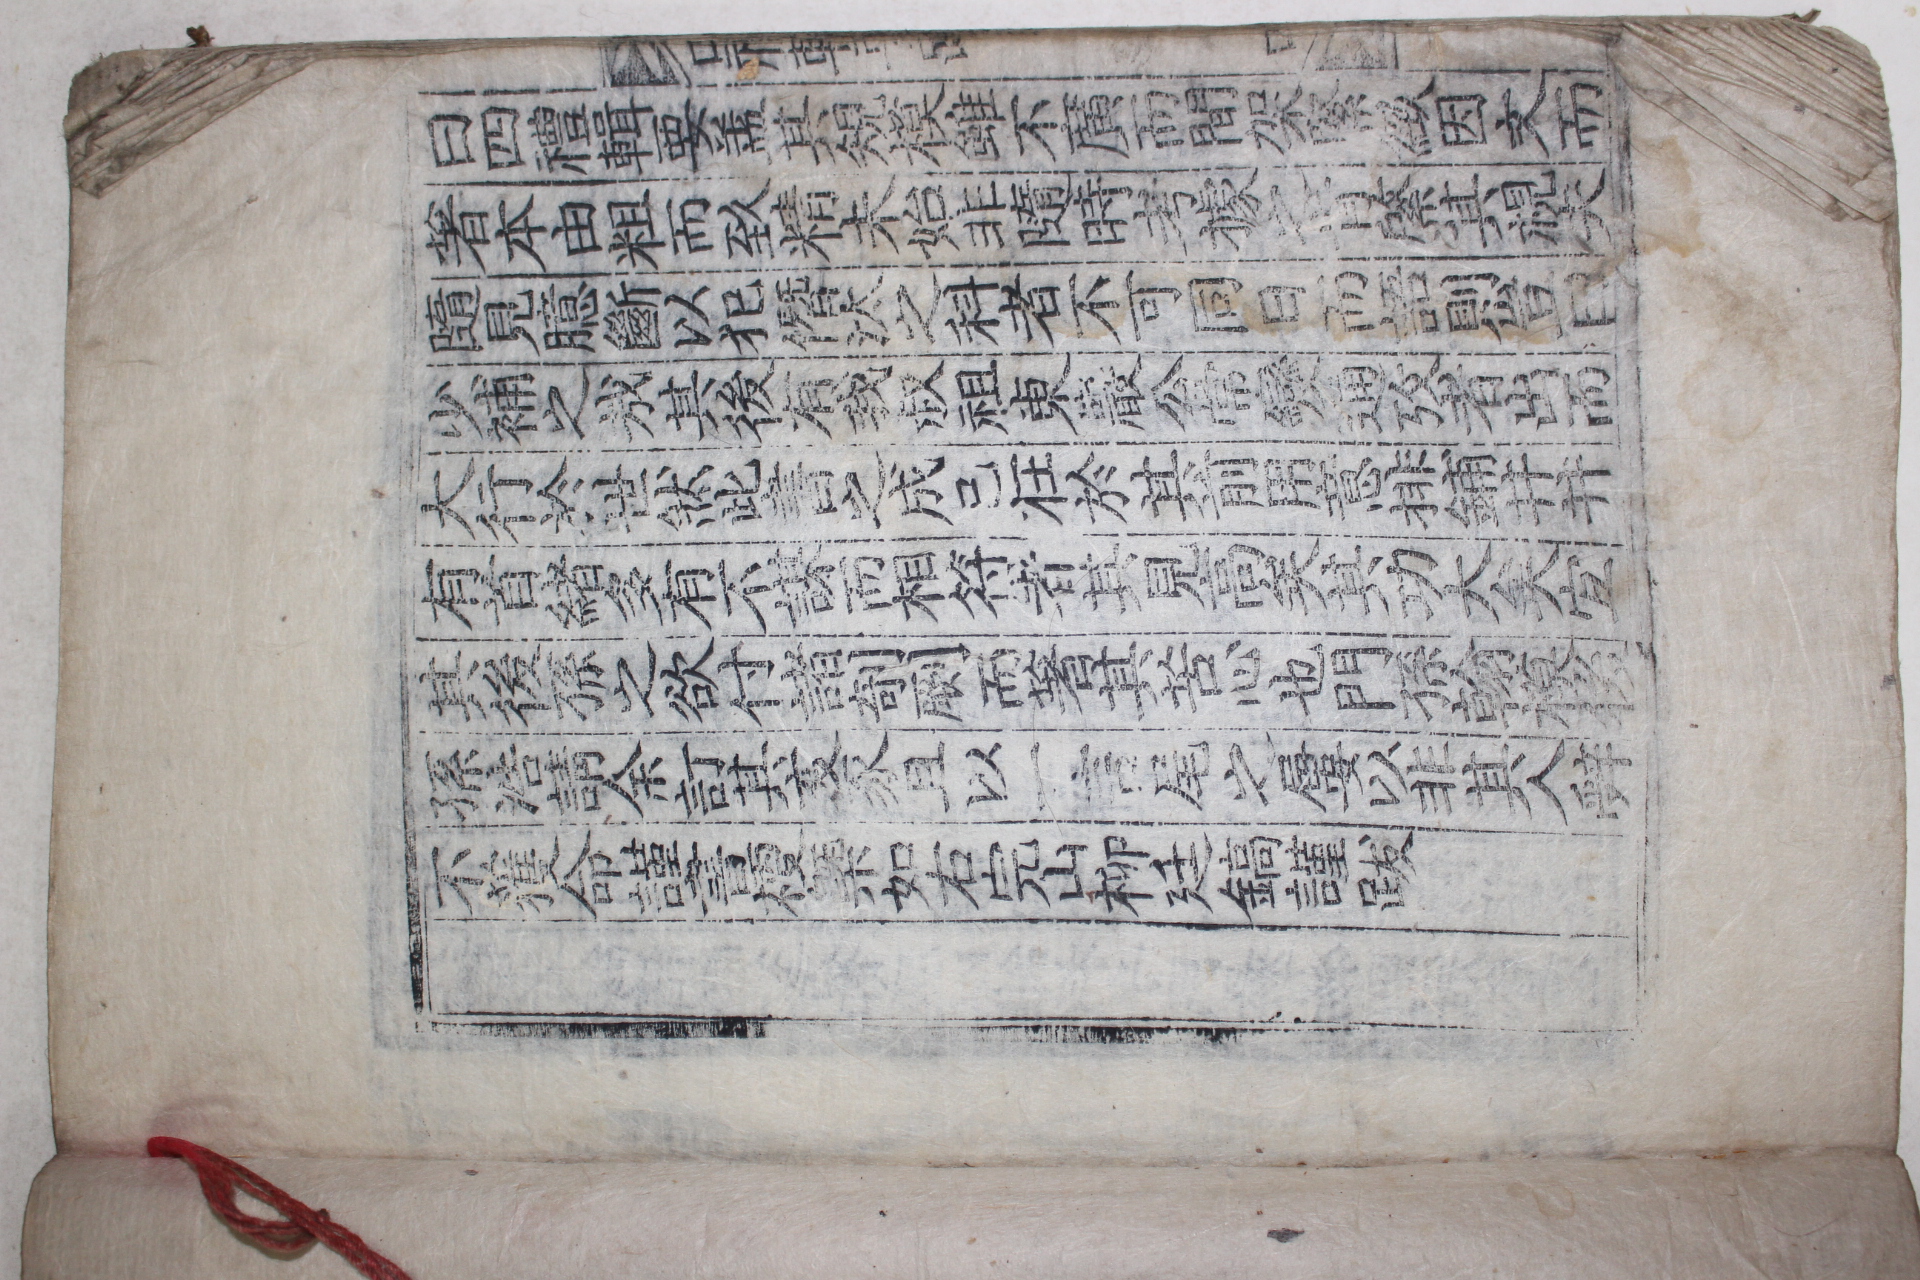 曰四禮輯要盖其規模雖不廣而間架緊緻因文而
著本由粗而致精未始非隨時考據之一膂繁其視夫
隨見臆斷以犯僭汰之科者不可同日而語則豈曰
少補之㢤其後有我叔祖東巖公常變通攷者出而
大行於世然此書之成已在於其前用意排鋪井井
有首緖多有不謀而相符者其見高矣其功大矣宜
其後孫之欲付諸剞劂而著其苦心也門孫翰模後
孫浩請余訂其亥豕且以一言尾之屢以非其人辭
不獲命謹書梗槩如右完山柳廷鎬謹跋